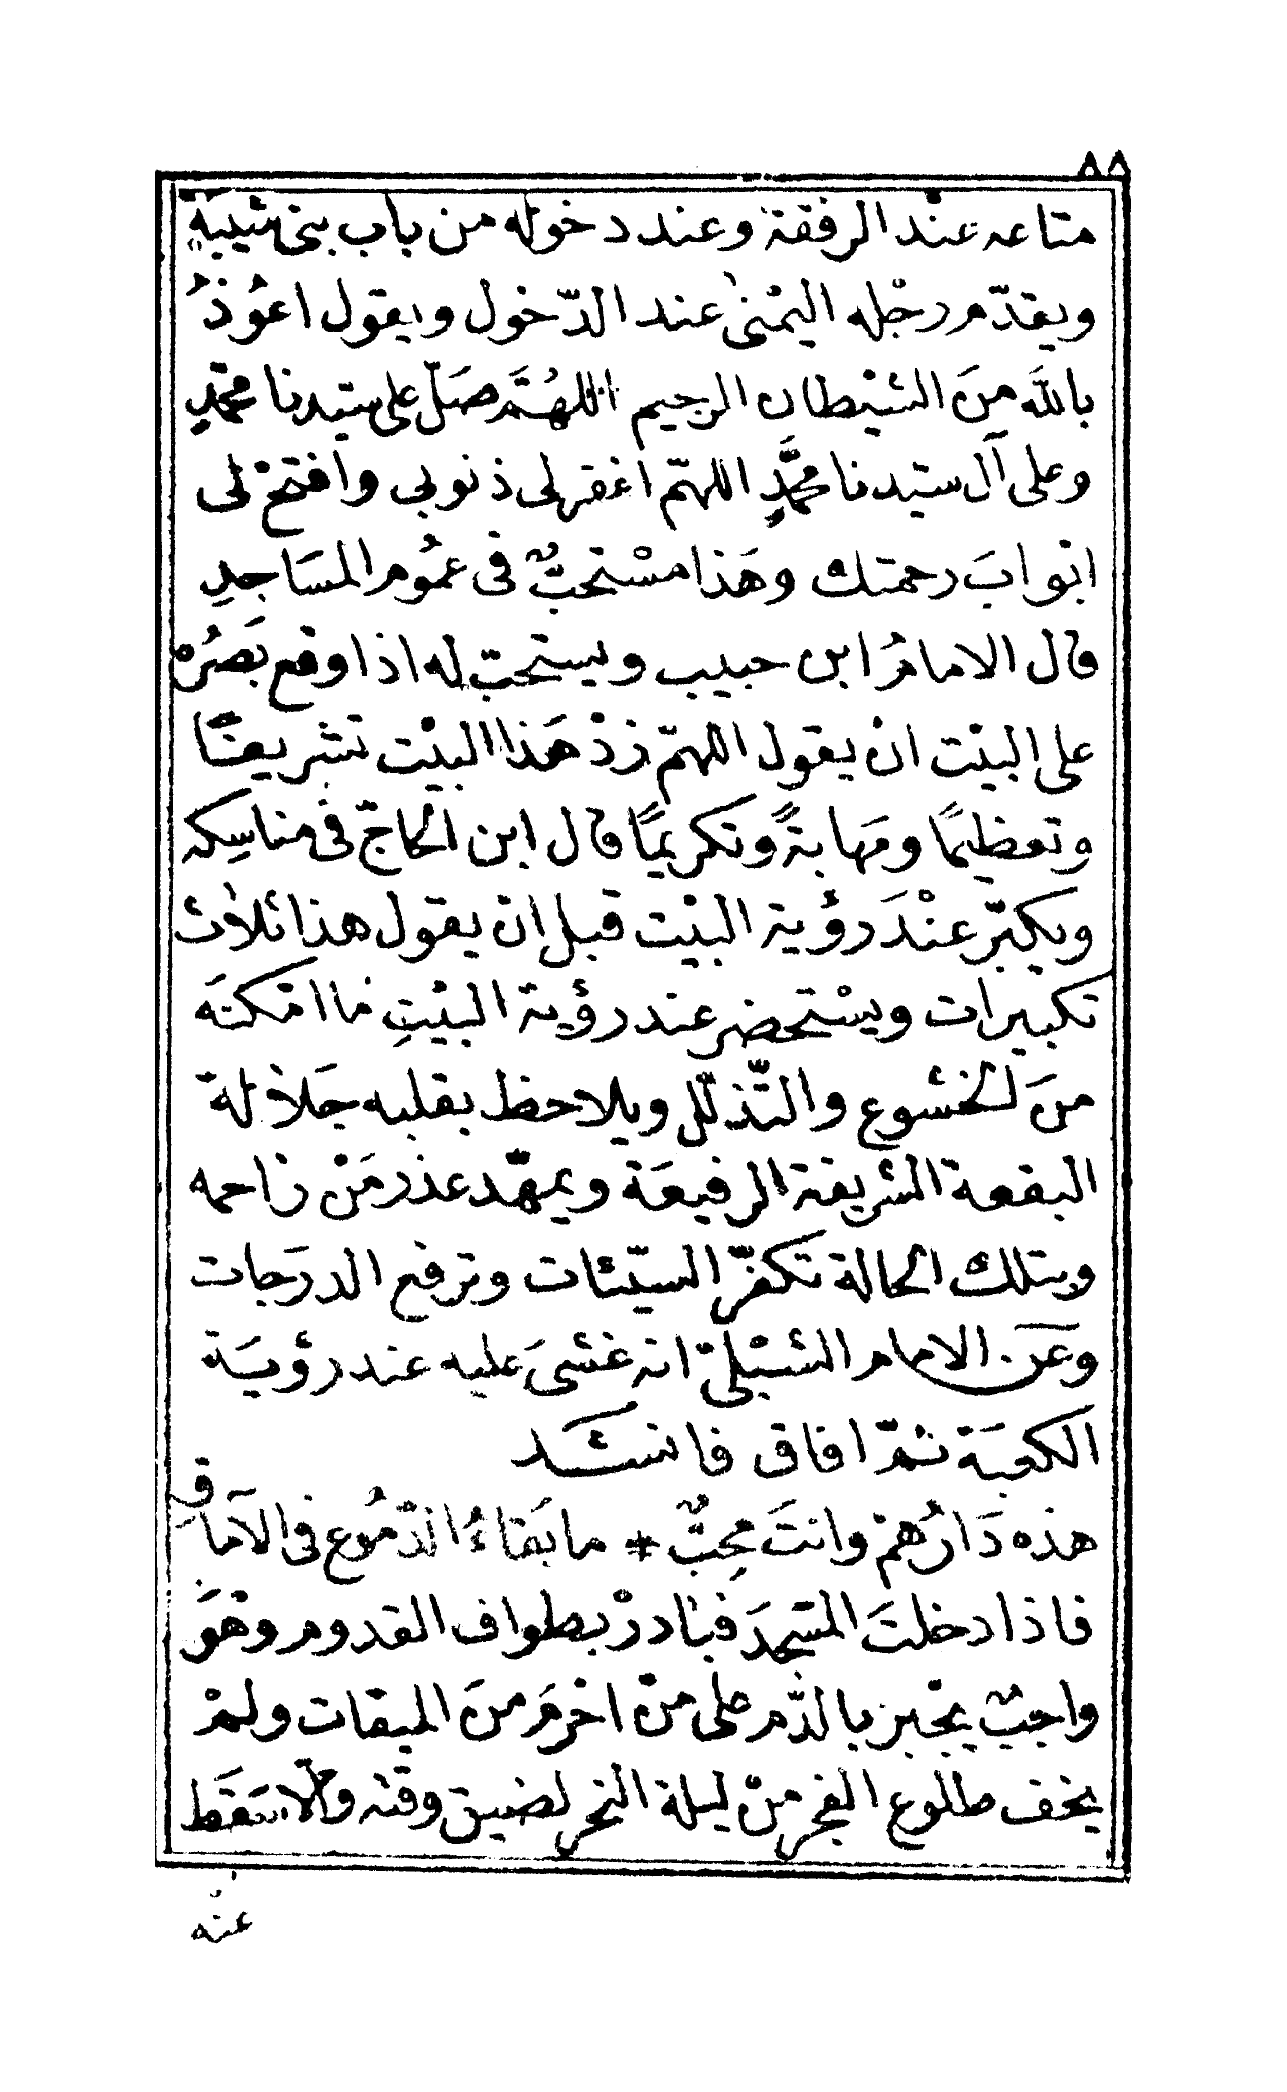 ٨٨
متاعه عنْد الرفقة وعند دخوله من باب بنى شيبة
ويقدّم رجْله اليمْنىٰ عند الدّخول ويقول اعوُذُ
بالله منَ الشيْطان الرجيم اللهُمَّ صَلّ على سيّدنا محمّدٍ
وعلى آل سيّدنا محمَّدٍ اللهمّ اغفر لى ذنوبى وافتحْ لى
ابْوابَ رحمتك وهَذا مسْتحبٌّ فى عمُوم المسَاجدِ
قال الامامُ ابن حبيب ويستحبّ له اذا وقع بَصَرُه
على البيْت انْ يقول اللهمّ زدْ هَذا البيْت تشريفًا
وتعظيمًا ومَهابةً وتكريمًا قال ابن الحاجّ فى مناسِكه
ويكبّر عنْدَ رؤية البيْت قبل انْ يقول هذا ثلاث
تكبيرات ويسْتحضر عند رؤية البيْتِ ما امْكنَه
منَ الخشوع والتّذلّل ويلاحظ بقلبه جَلالة
البقعة الشريفة الرفيعَة ويمهّد عذر مَنْ زاحمه
وبتلك الحالة تكفّر السيّئات وترفع الدرَجات
وعَن الامام الشبْلىّ انه غشىَ عليه عند رؤيَة
الكعبَة ثمّ افاق فانشد
هذه دَارُهمْ وانتَ محِبٌّ * ما بَقاءُ الدّمُوع فى الآماقِ
فاذا دخلتَ المسْجدَ فبَادرْ بطواف القدوم وهْوَ
واجبٌ يجْبر بالدّم على منْ احْرمَ منَ الميقات ولمْ
يخف طلوع الفجر منْ ليلة النحر لضيق وقته والّا سَقَط
عنْه